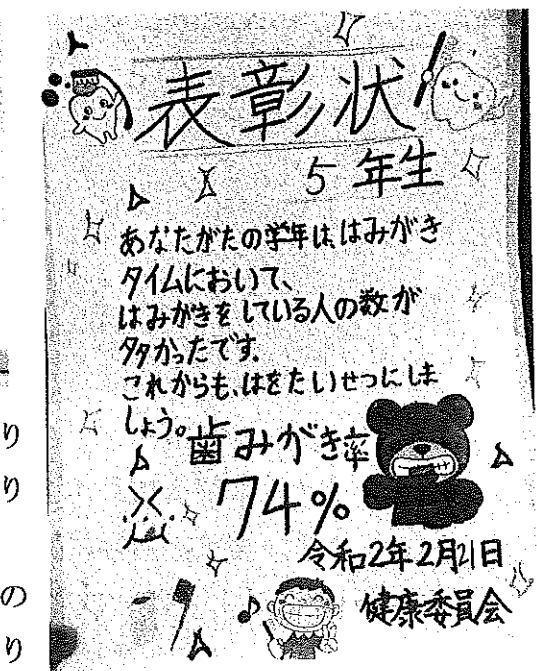 表彰状
5年生
あなたがたの学年は、はみがき
タイムにおいて、
はみがきをしている人の数が
多かったです。
これからも、はをたいせつにしま
しょう。
歯みがき率
74%
令和2年2月21日
健康委員会
り
り
の
り